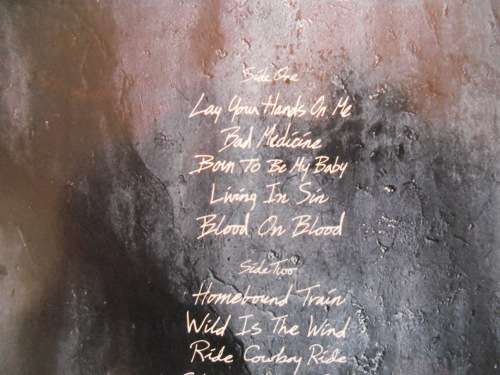 Side One
Lay Your Hands On Me
Bad Medicine
Born To Be My Baby
Living In Sin
Blood On Blood
Side Two
Homebound Train
Wild Is The Wind
Ride Cowboy Ride